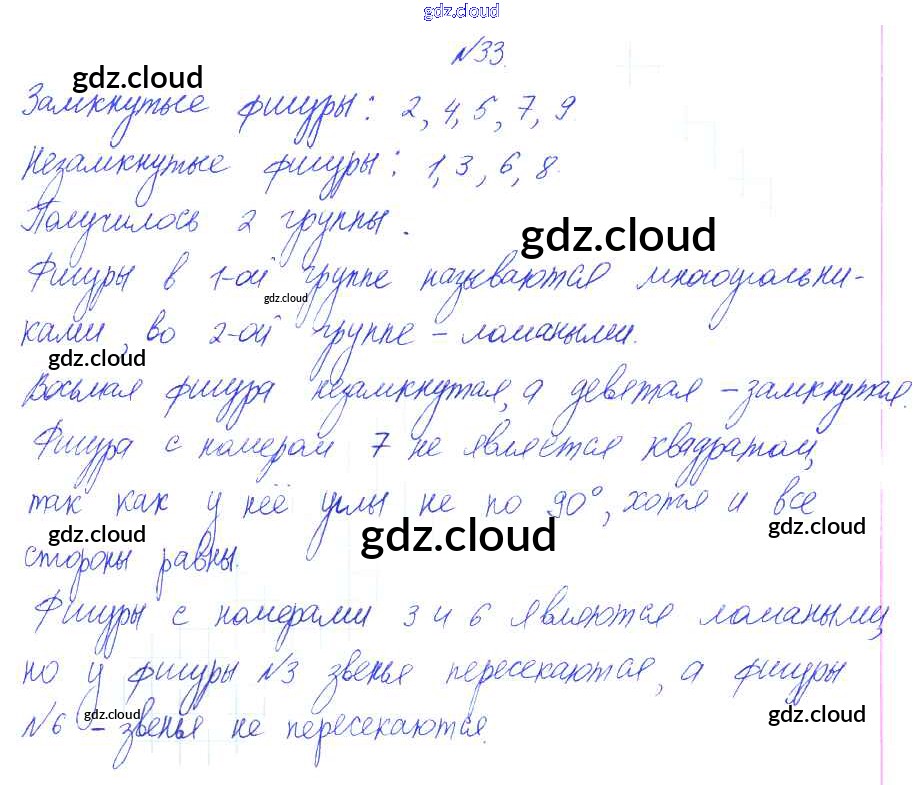 gdz.cloud
№33.
gdz.cloud
Замкнутые фигуры: 2, 4, 5, 7, 9.
Незамкнутые фигуры: 1, 3, 6, 8.
Получилось 2 группы.
gdz.cloud
Фигуры в 1-ой группе называются многоугольни-
gdz.cloud
ками, во 2-ой группе – ломаными.
gdz.cloud
Восьмая фигура незамкнутая, а девятая – замкнутая.
Фигура с номером 7 не является квадратом,
так как у неё углы не по 90°, хотя и все
gdz.cloud gdz.cloud gdz.cloud
стороны равны.
Фигуры с номерами 3 и 6 являются ломаными,
но у фигуры №3 звенья пересекаются, а фигуры
gdz.cloud gdz.cloud
№6 – звенья не пересекаются.